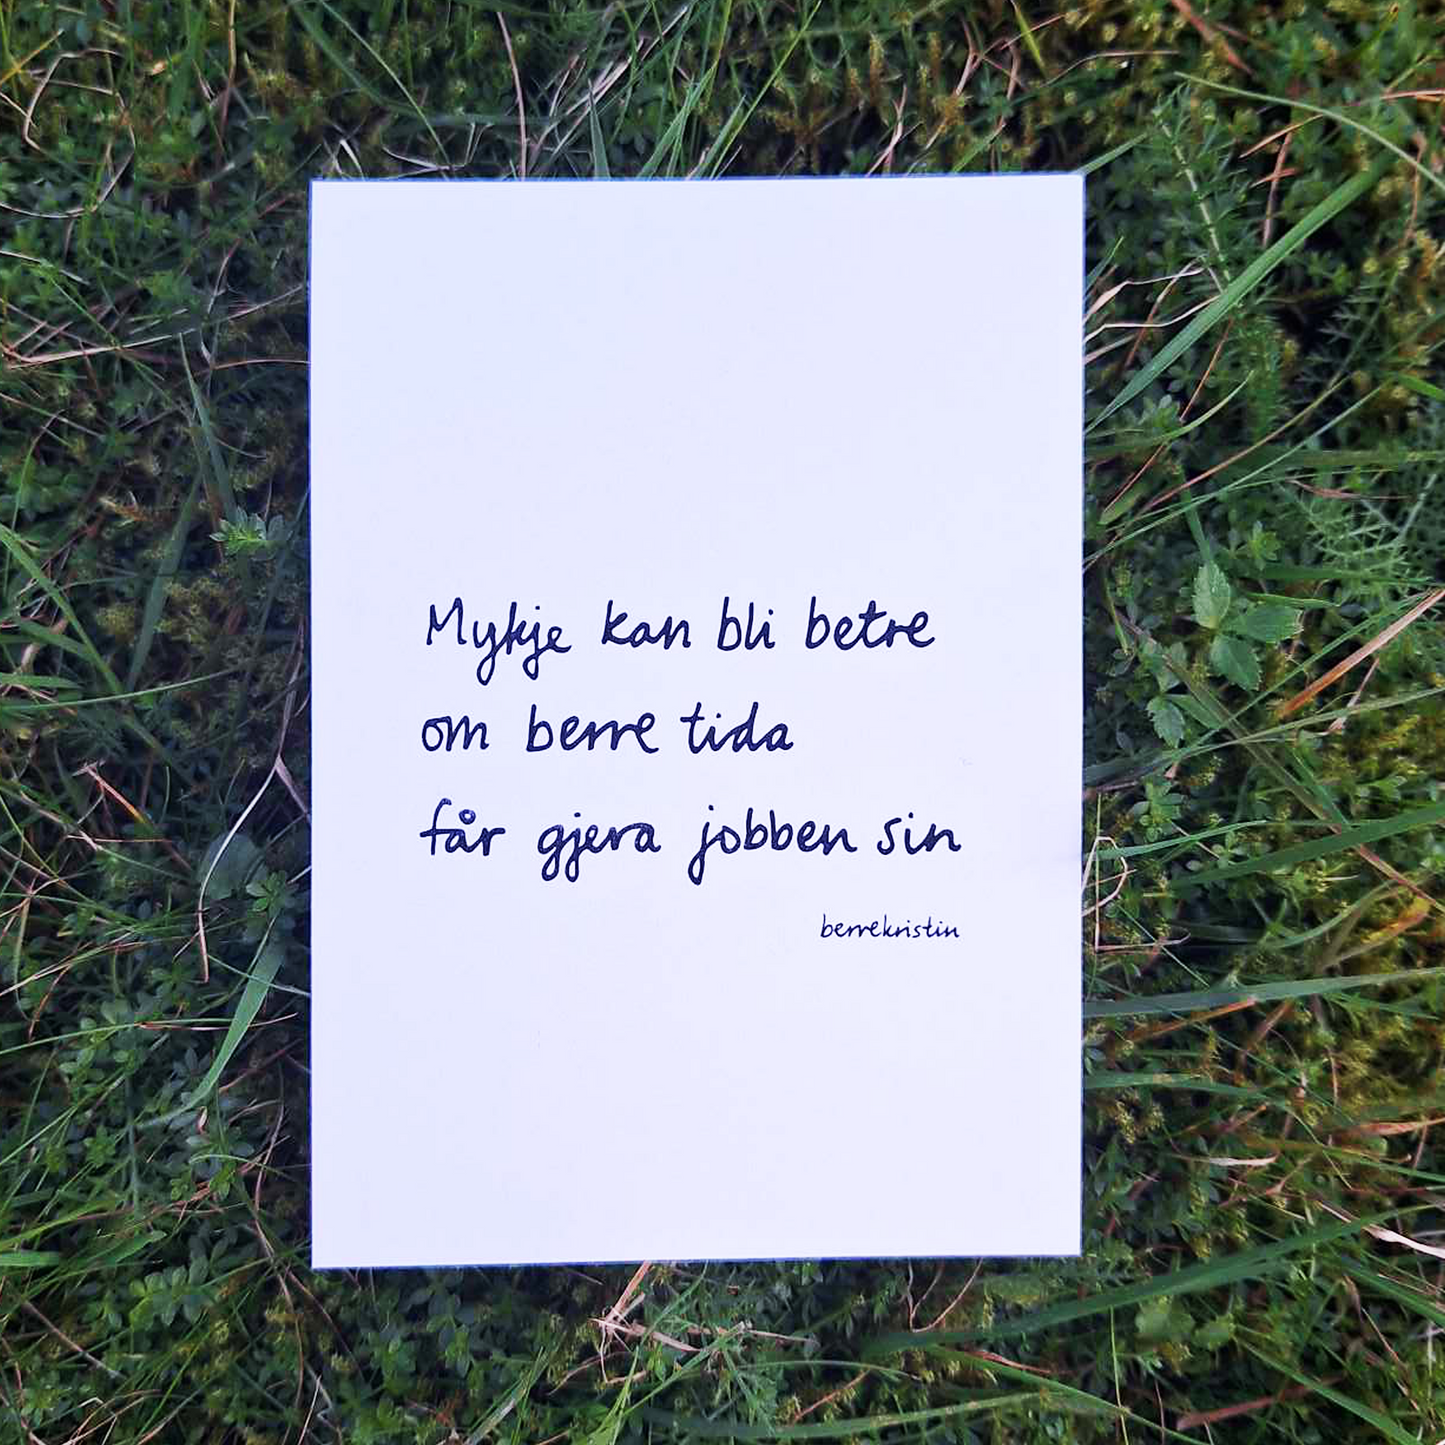 Mykje kan bli betre
om berre tida
får gjera jobben sin
berrekristin